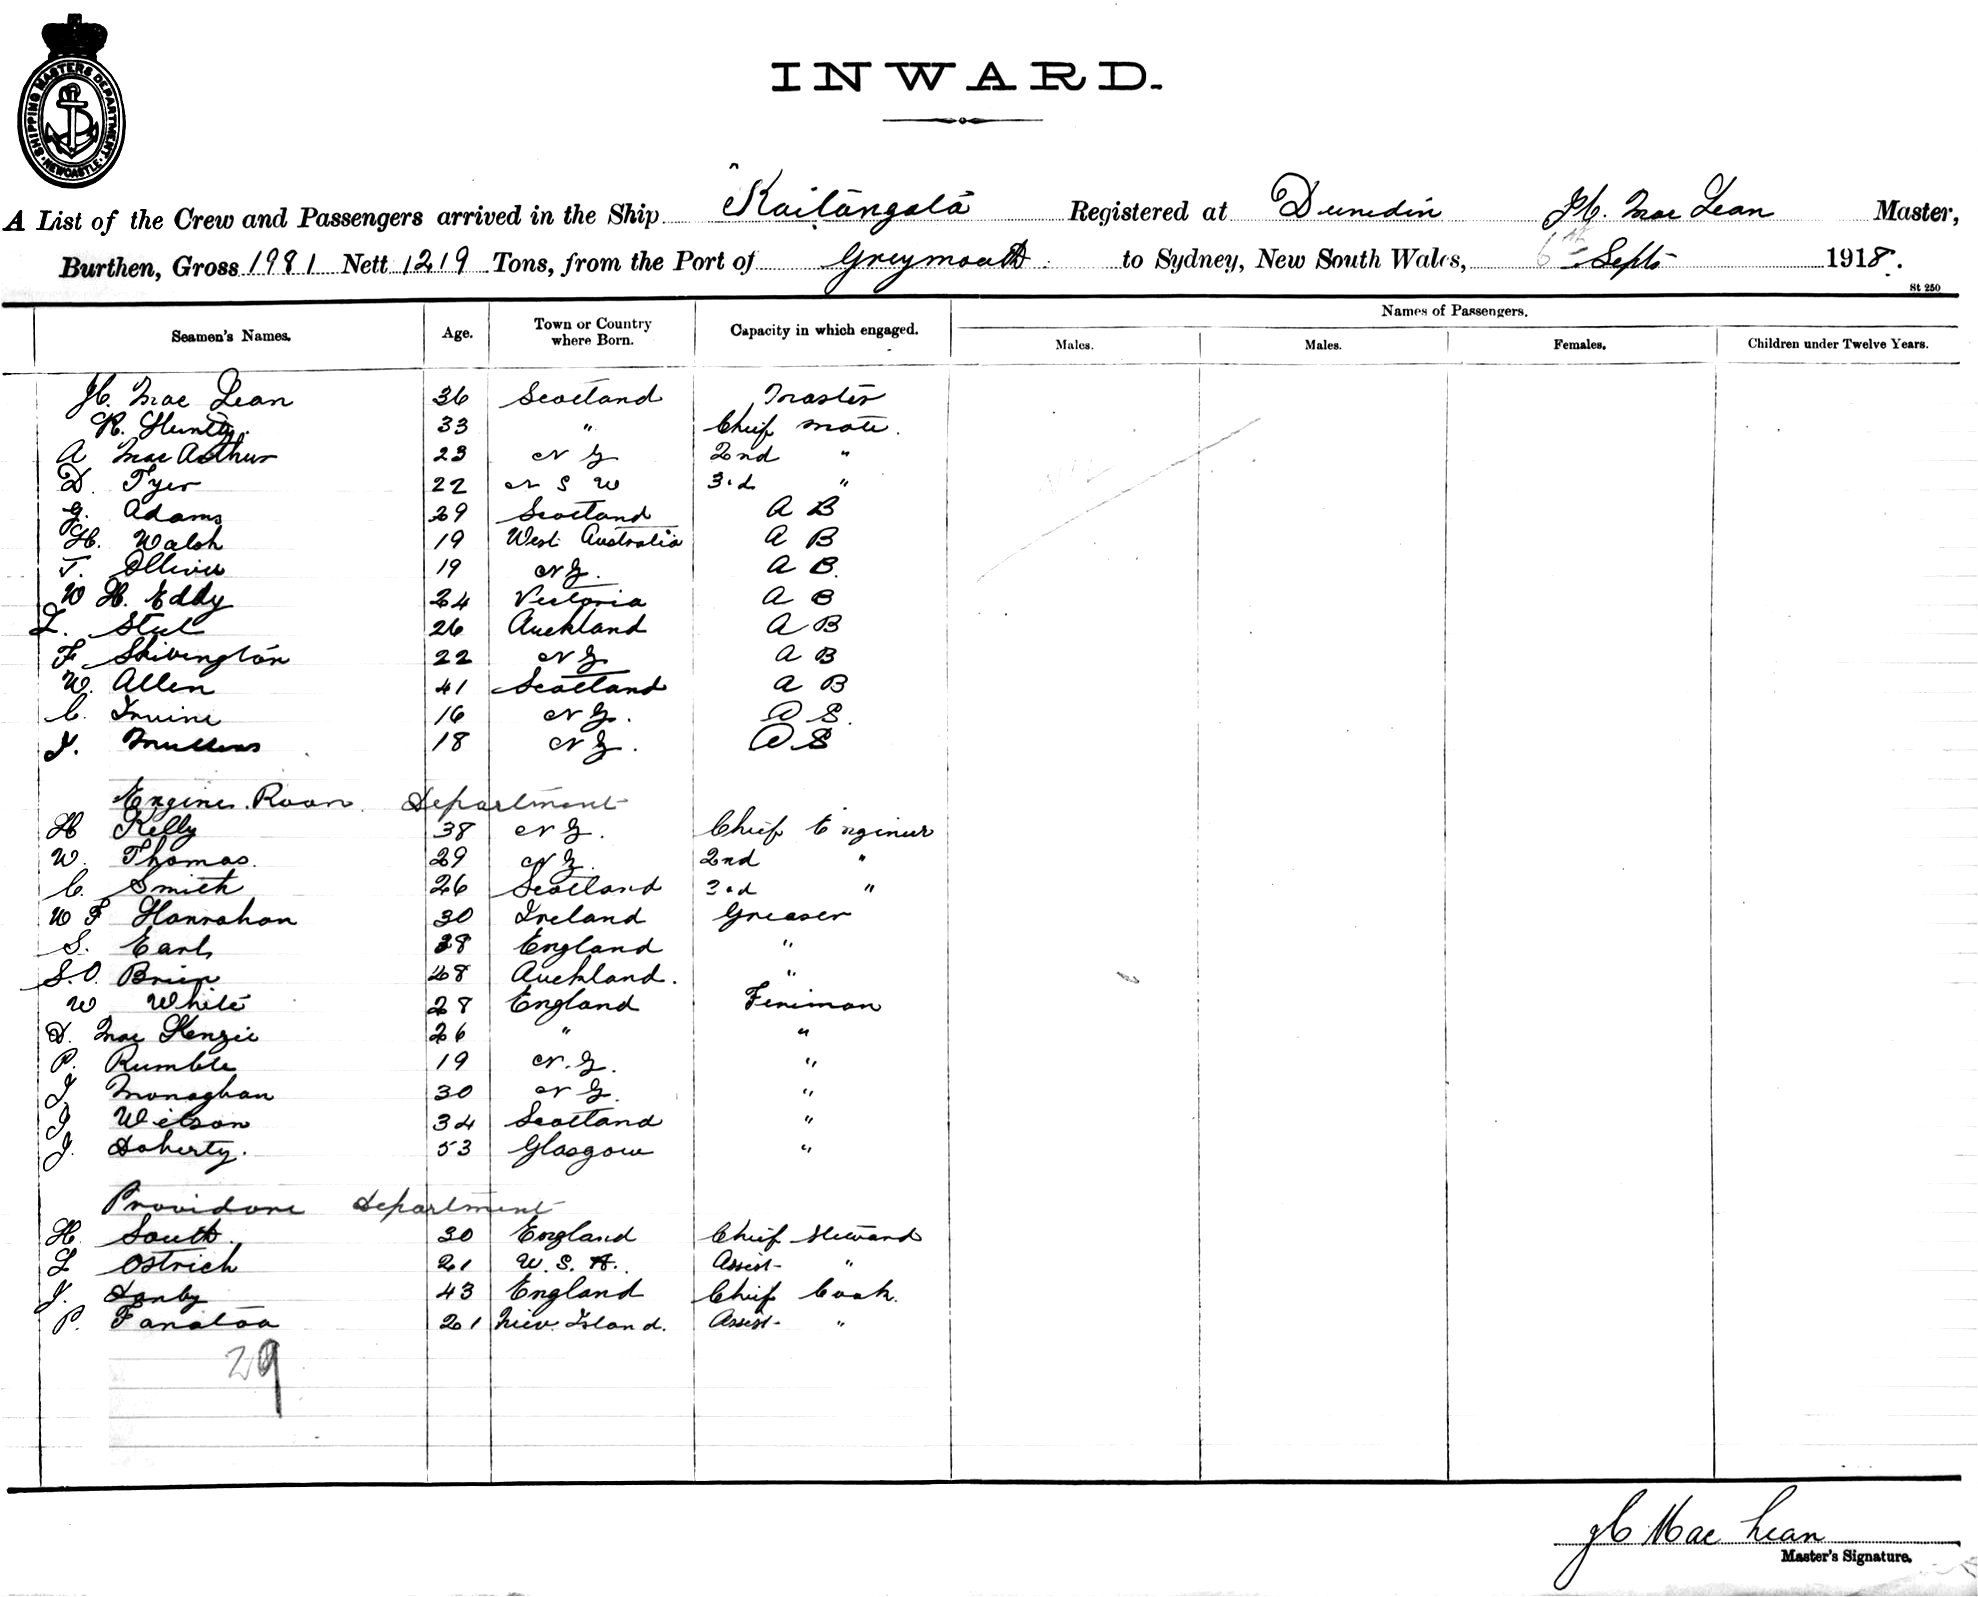 SHIPPING MASTERS DEPARTMENT · NEWCASTLE ·
INWARD.
A List of the Crew and Passengers arrived in the Ship Kaitangata Registered at Dunedin H. Mac Lean Master,
Burthen, Gross 1981 Nett 1219 Tons, from the Port of Greymouth to Sydney, New South Wales, 6th Sept 1918.
St 250
Seamen's Names. Age. Town or Country where Born. Capacity in which engaged. Names of Passengers.
Males. Males. Females. Children under Twelve Years.
H. Mac Lean 36 Scotland Master
R. Hunter 33 " Chief Mate.
A Mac Arthur 23 N Z 2nd "
D. Tyer 22 N S W 3rd "
G. Adams 29 Scotland A B
H. Walsh 19 West Australia A B
T. Ollivier 19 N Z. A B.
W H. Eddy 24 Victoria A B
L. Steel 26 Auckland A B
F Skivington 22 N Z A B
W. Allen 41 Scotland A B
C. Irvine 16 N Z. O S.
J. Mullens 18 N Z. O S
Engine Room Department
H Kelly 38 N Z. Chief Engineer
W. Thomas. 29 N Z. 2nd "
C. Smith 26 Scotland 3rd "
W F Hanrahan 30 Ireland Greaser
S. Earl 28 England "
S. O. Brien 28 Auckland. "
W White 28 England Fireman
D. Mac Kenzie 26 " "
P. Rumble 19 N. Z. "
J Monaghan 30 N Z. "
J Wilson 34 Scotland "
J. Doherty. 53 Glasgow "
Providore Department
H. South. 30 England Chief Steward
L Ostrich 21 U. S. A. Assist- "
J. Danby 43 England Chief Cook.
P. Fanatoa 21 Niev. Island. Assist- "
29
H Mac Lean
Master's Signature.